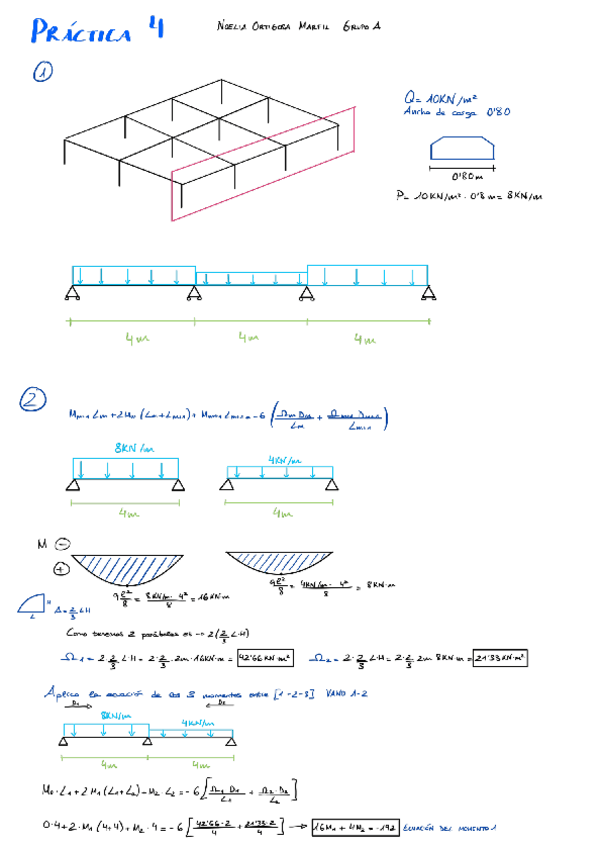 PRÁCTICA 4
NOELIA ORTIGOSA MARFIL GRUPO A
1
Q= 10KN/m²
Ancho de carga 0'80
0'80m
P= 10KN/m² · 0'8m = 8KN/m
4m 4m 4m
2
8KN/m 4KN/m
4m 4m
M ⊖
⊕
qℓ²/8 = 8KN/m · 4²/8 = 16KN·m
qℓ²/8 = 4KN/m · 4²/8 = 8KN·m
H
L
A = 2/3 L·H
Como tenemos 2 parábolas es → 2(2/3 L·H)
Ω1 = 2·2/3 L·H = 2·2/3 · 2m · 16KN·m = 42'66 KN·m²
Ω2 = 2·2/3 L·H = 2·2/3 2m 8KN·m = 21'33 KN·m²
Aplico la ecuación de los 3 momentos entre [1-2-3] VANO 1-2
8KN/m 4KN/m
4m 4m
M0·L1 + 2M1(L1+L2) - M2·L2 = -6 [Ω1·D1/L1 + Ω2·D2/L2]
0·4 + 2·M1(4+4) + M2·4 = -6 [42'66·2/4 + 21'33·2/4] → 16M1 + 4M2 = -192 ECUACIÓN DEL MOMENTO 1